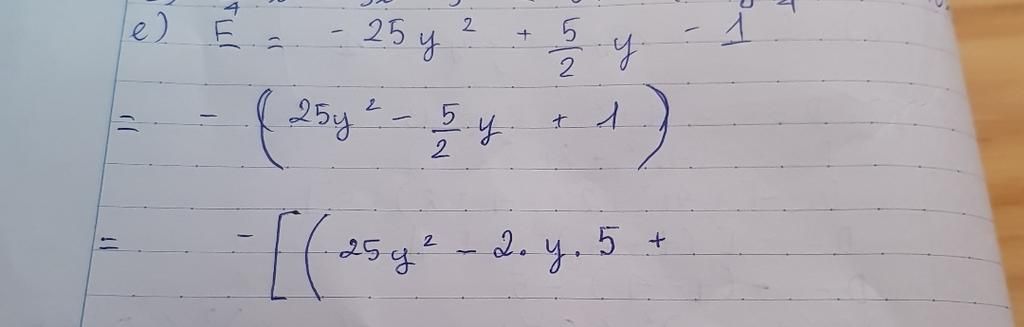 e) E = - 25y² + 5/2 y - 1
= - ( 25y² - 5/2 y + 1 )
= - [ ( 25y² - 2. y. 5 +